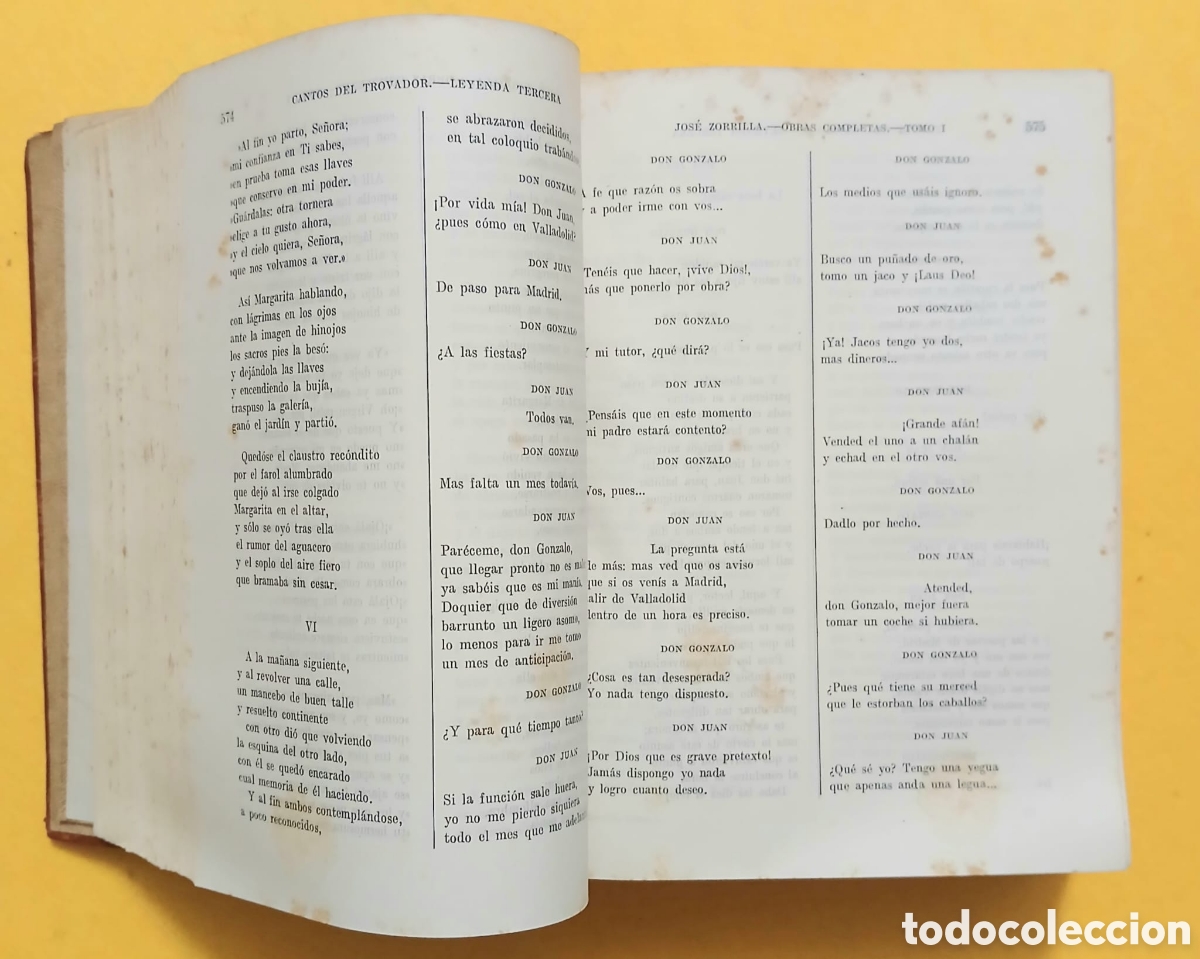 574
CANTOS DEL TROVADOR.—LEYENDA TERCERA
»Al fin yo parto, Señora;
»mi confianza en Ti sabes,
»en prueba toma esas llaves
»que conservo en mi poder.
»Guárdalas: otra tornera
»elige a tu gusto ahora,
»y el cielo quiera, Señora,
»que nos volvamos a ver.»
Así Margarita hablando,
con lágrimas en los ojos
ante la imagen de hinojos
los sacros pies la besó:
y dejándola las llaves
y encendiendo la bujía,
traspuso la galería,
ganó el jardín y partió.
Quedóse el claustro recóndito
por el farol alumbrado
que dejó al irse colgado
Margarita en el altar,
y sólo se oyó tras ella
el rumor del aguacero
y el soplo del aire fiero
que bramaba sin cesar.
VI
A la mañana siguiente,
y al revolver una calle,
un mancebo de buen talle
y resuelto continente
con otro dió que volviendo
la esquina del otro lado,
con él se quedó encarado
cual memoria de él haciendo.
Y al fin ambos contemplándose,
a poco reconocidos,
se abrazaron decididos,
en tal coloquio
DON GONZALO
¡Por vida mía! Don Juan,
¿pues cómo en Valladolid?
DON JUAN
De paso para Madrid.
DON GONZALO
¿A las fiestas?
DON JUAN
Todos van.
DON GONZALO
Mas falta un mes todavía.
DON JUAN
Paréceme, don Gonzalo,
que llegar pronto no es
ya sabéis que es mi manía.
Doquier que de diversión
barrunto un ligero asomo,
lo menos para ir me tomo
un mes de anticipación.
DON GONZALO
¿Y para qué tiempo tanto?
DON JUAN
Si la función sale huera,
yo no me pierdo siquiera
todo el mes que me
JOSÉ ZORRILLA.—OBRAS COMPLETAS.—TOMO I
575
DON GONZALO
fe que razón os sobra
a poder irme con vos...
DON JUAN
Tenéis que hacer, ¡vive Dios!,
más que ponerlo por obra?
DON GONZALO
Y mi tutor, ¿qué dirá?
DON JUAN
Pensáis que en este momento
mi padre estará contento?
DON GONZALO
Vos, pues...
DON JUAN
La pregunta está
de más: mas ved que os aviso
que si os venís a Madrid,
salir de Valladolid
dentro de un hora es preciso.
DON GONZALO
¿Cosa es tan desesperada?
Yo nada tengo dispuesto.
DON JUAN
¡Por Dios que es grave pretexto!
Jamás dispongo yo nada
y logro cuanto deseo.
DON GONZALO
Los medios que usáis ignoro.
DON JUAN
Busco un puñado de oro,
tomo un jaco y ¡Laus Deo!
DON GONZALO
¡Ya! Jacos tengo yo dos,
mas dineros...
DON JUAN
¡Grande afán!
Vended el uno a un chalán
y echad en el otro vos.
DON GONZALO
Dadlo por hecho.
DON JUAN
Atended,
don Gonzalo, mejor fuera
tomar un coche si hubiera.
DON GONZALO
¿Pues qué tiene su merced
que le estorban los caballos?
DON JUAN
¿Qué sé yo? Tengo una yegua
que apenas anda una legua...
todocoleccion